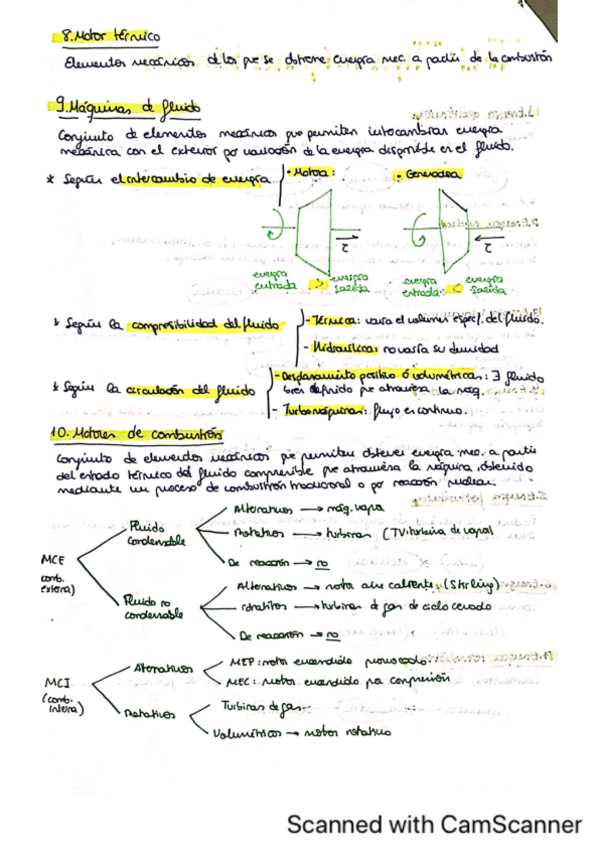 8. Motor térmico
Elementos mecánicos de los que se obtiene energía mec. a partir de la combustión
9. Máquinas de fluido
Conjunto de elementos mecánicos que permiten intercambiar energía
mecánica con el exterior por variación de la energía disponible en el fluido.
* Según el intercambio de energía
- Motora:
- Generadora
τ
τ
energía entrada > energía salida
energía entrada < energía salida
* Según la compresibilidad del fluido
- Térmica: varía el volumen especf. del fluido.
- Hidraúlica: no varía su densidad
* Según la circulación del fluido
- Desplazamiento positivo ó volumétricas: ∃ fluido
bien definido que atraviesa la máq.
- Turbomáquinas: flujo es continuo.
10. Motores de combustión
Conjunto de elementos mecánicos que permiten obtener energía mec. a partir
del estado térmico del fluido compresible que atraviesa la máquina, obtenido
mediante un proceso de combustión tradicional o por reacción nuclear.
MCE
(comb. externa)
Fluido condensable
Alternativos → máq. vapor
Rotativos → turbinas (TV: turbina de vapor)
De reacción → no
Fluido no condensable
Alternativos → motor aire caliente (Stirling)
rotativos → turbinas de gas de ciclo cerrado
De reacción → no
MCI
(comb. interna)
Alternativos
MEP: motor encendido provocado.
MEC: Motor encendido por compresión
Rotativos
Turbinas de gas
Volumétricos → motor rotativo
Scanned with CamScanner